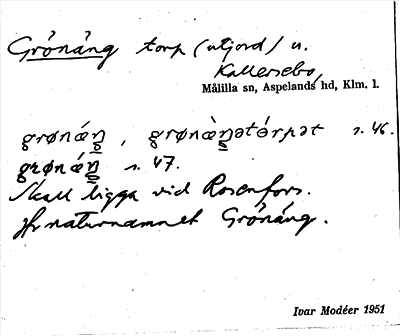 Grönäng torp (utjord) u.
Kallersebo,
Målilla sn, Aspelands hd, Klm. l.
grønǽŋ̳, grønæ̀ŋ̳ətɵ́rpət s. 46.
grønǽŋ̳ s. 47.
Skall ligga vid Rosenfors.
Jfr naturnamnet Grönäng.
Ivar Modéer 1951